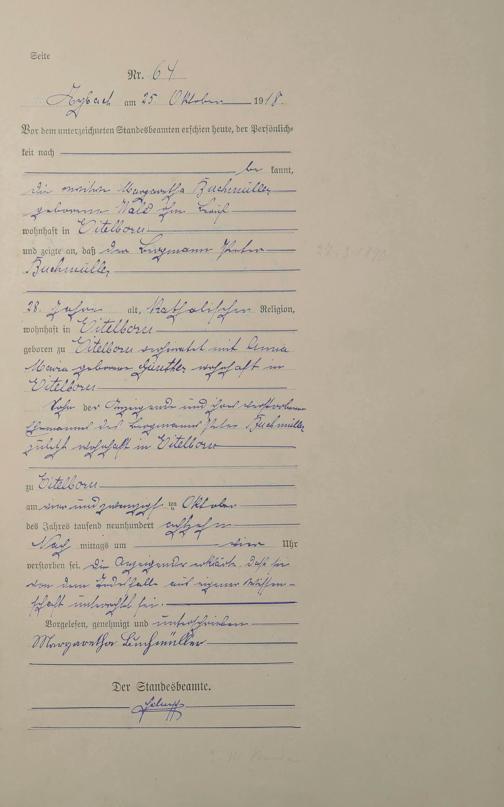 Seite
Nr. 64
am 25 Oktober 1918.
Vor dem unterzeichneten Standesbeamten erschien heute, der Persönlich-
keit nach
be kannt,
die Witwe Margaretha Buchmüller
geborene Wald
wohnhaft in Eitelborn
und zeigte an, daß der Bergmann Peter
Buchmüller
28 Jahre alt, katholischer Religion,
wohnhaft in Eitelborn
geboren zu Eitelborn verheiratet mit Anna
Maria geborene Günther wohnhaft in
Eitelborn
Sohn der Anzeigende und ihres verstorbenen
Ehemannes des Bergmanns Peter Buchmüller
zuletzt wohnhaft in Eitelborn
zu Eitelborn
am vier und zwanzigsten Oktober
des Jahres tausend neunhundert achtzehn
Nach mittags um vier Uhr
verstorben sei. Die Anzeigende erklärte, daß sie
von dem Todesfalle aus eigener Wissen-
schaft unterrichtet sei.
Vorgelesen, genehmigt und unterschrieben
Margaretha Buchmüller
Der Standesbeamte.